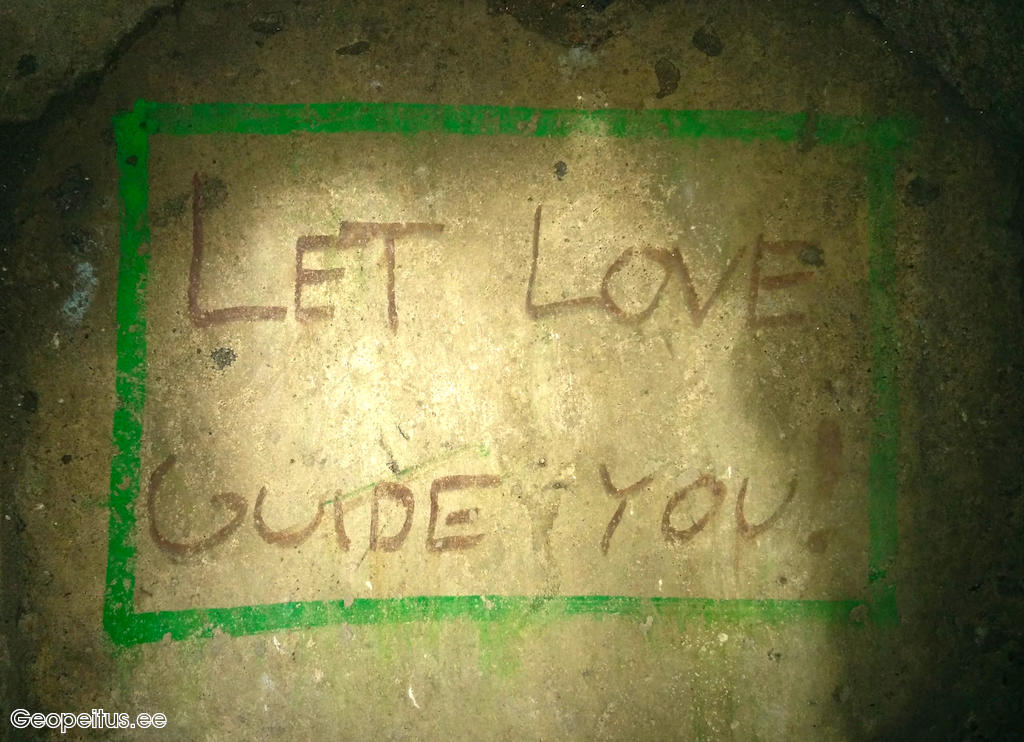 LET LOVE
GUIDE YOU!
Geopeitus.ee